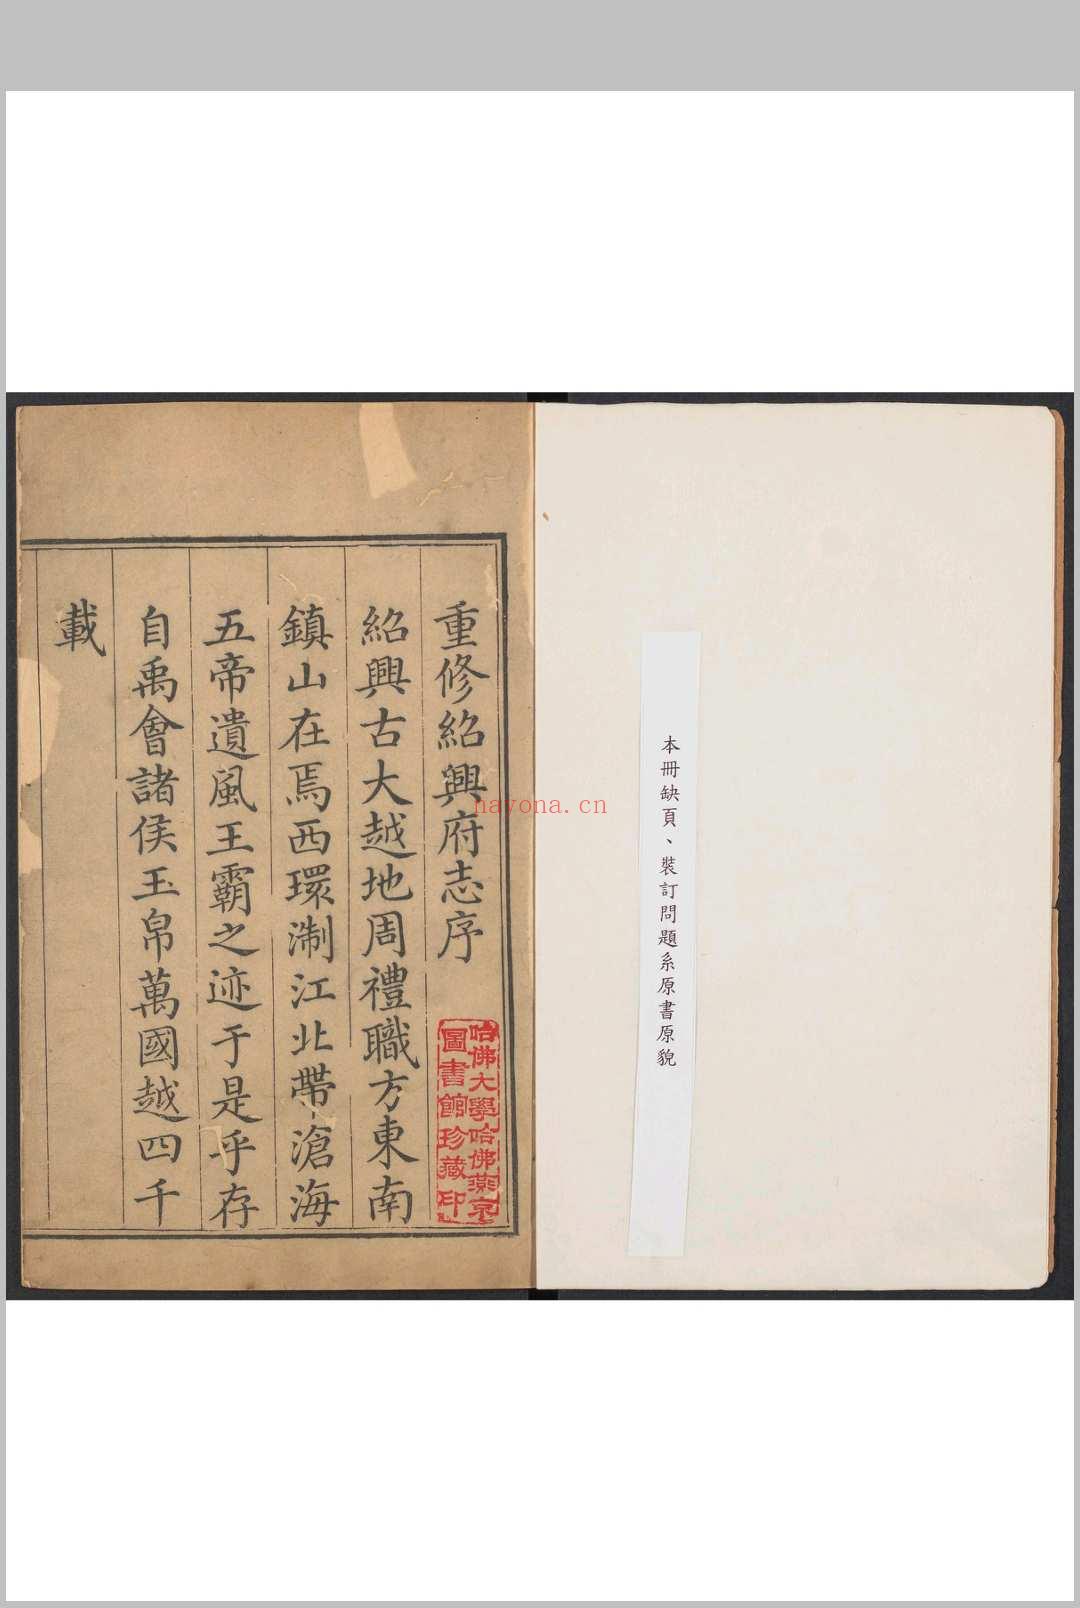 本冊缺頁、裝訂問題系原書原貌
重修紹興府志序
紹興古大越地周禮職方東南
鎮山在焉西環淛江北帶滄海
五帝遺風王霸之迹于是乎存
自禹會諸侯玉帛萬國越四千
載
哈佛大學哈佛燕京
圖書館珍藏印
nayona.cn